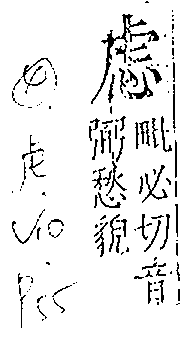 虑
毗必切音
弼愁貌
④
虍
V10
P55